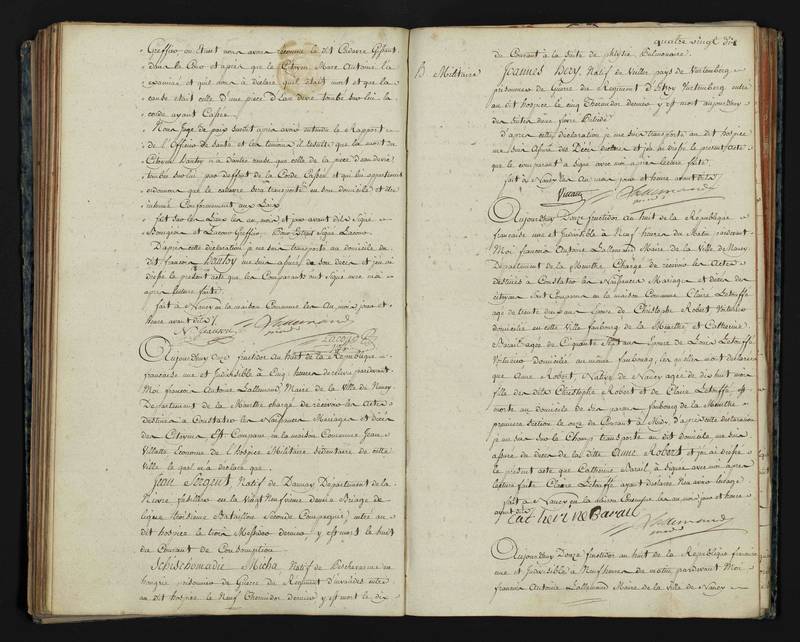 Greffier ou Etant nous avons reconnu le dit Cadavre Gissant
dans la Cour et après que le Citoyen Marc Antoine l'a
examiné et qu'il nous a déclaré quil etait mort et que la
cause etait celle d'une piece d'Eau devie tombé sur lui la
corde ayant Cassée.
Nous Juge de paix Susdit après avoir entendu le Rapport
de l'Officier de Santé et les temoins il resulte que la mort du
Citoyen hantoy n'a dautre cause que celle de la piece d'eau devie
tombée sur lui par deffaut de la Corde Cassée et qui les apartient
ordonnons que le cadavre sera transporté en son domicile et être
inhumé Conformement aux Loix
fait sur les Lieux les an, mois et jour avant dits Signé
Bourgeois et Greffier
D'après cette déclaration je me suis transporté au domicile du
dit françois hantoy me suis assuré de son decès et j'en ai
dressé le présent acte que les Comparants ont Signé avec moi
après lecture faite.
fait à Nancy en la maison Commune les An, mois jour et
heure avant dits
Lallemand
maire
Aujourdhuy Onze fructidor an huit de la République
française une et Indivisible à Cinq heures de relevée pardevant
Moi françois Antoine Lallemand Maire de la Ville de Nancy
Departement de la Meurthe chargé de recevoir les Actes
destinés à Constater les Naissances Mariages et décès
des Citoyens, Est Comparu en la maison Commune Jean
Villatte Econome de l'hospice Militaire sédentaire de cette
ville le quel m'a déclaré que
Jean Sergent Natif de Damay Département de la
Nievre fusillier en la Vingt Neuvième demie Brigade de
ligne troisième Bataillon Seconde Compagnie, entré au
dit hospice le trois Messidor dernier y est mort le huit
du Courant de Consomption
Schischomadie Micha Natif de en
hongrie prisonnier de Guerre du Régiment entré
au dit hospice le Neuf Thermidor dernier y est mort le dix
quatre vingt dix
du Courant à la suite de phtysie Pulmonaire.
B Militaire
Joannes Bery Natif de pays de Virtemberg
prisonnier de Guerre du Régiment d'Itzy Virtemberg entré
au dit hospice le cinq Thermidor dernier y est mort aujourdhuy
des Suites d'une fièvre Putride
d'après cette déclaration je me suis transporté au dit hospice
me suis Assuré des Décès dessus et j'en ai dressé le présent acte
que le comparant a signé avec moi après lecture faite.
fait à Nancy les An mois jour et heure avant dits
Lallemand
maire
Aujourdhuy Douze fructidor an huit de la République
française une et Indivisible à Neuf heures du Matin pardevant
Moi françois Antoine Lallemand Maire de la Ville de Nancy
Département de la Meurthe Chargé de recevoir les Actes
destinés à Constater les Naissances Mariages et décès des
citoyens sont Comparus en la maison Commune Claire Letouffe
agée de trente du ans Epouse de Christophe Robert
domiciliée en cette Ville faubourg de la Meurthe et Catherine
Barail agée de Cinquante Sept ans Epouse de Louis Letouffe
domicilié au même faubourg, les quelles m'ont déclaré
que Anne Robert, Native de Nancy agée de dix huit mois
fille des dits Christophe Robert et de Claire Letouffe est
morte au domicile de ses parens faubourg de la Meurthe
première Section le onze du Courant à Midi, D'après cette declaration
je me suis sur le Champ transporté au dit domicile, me suis
assuré du decès de la ditte Anne Robert et j'en ai dressé
le présent acte que Catherine Barail, à Signé avec moi après
lecture faite Claire Letouffe ayant declaré Non avoir l'usage
fait à Nancy en la maison Commune les an mois jour et heure
avant dits
Catherine Barail
Lallemand
maire
Aujourdhuy Douze fructidor an huit de la République française
une et Indivisible à Neuf heures du matin pardevant Moi
françois Antoine Lallemand Maire de la Ville de Nancy